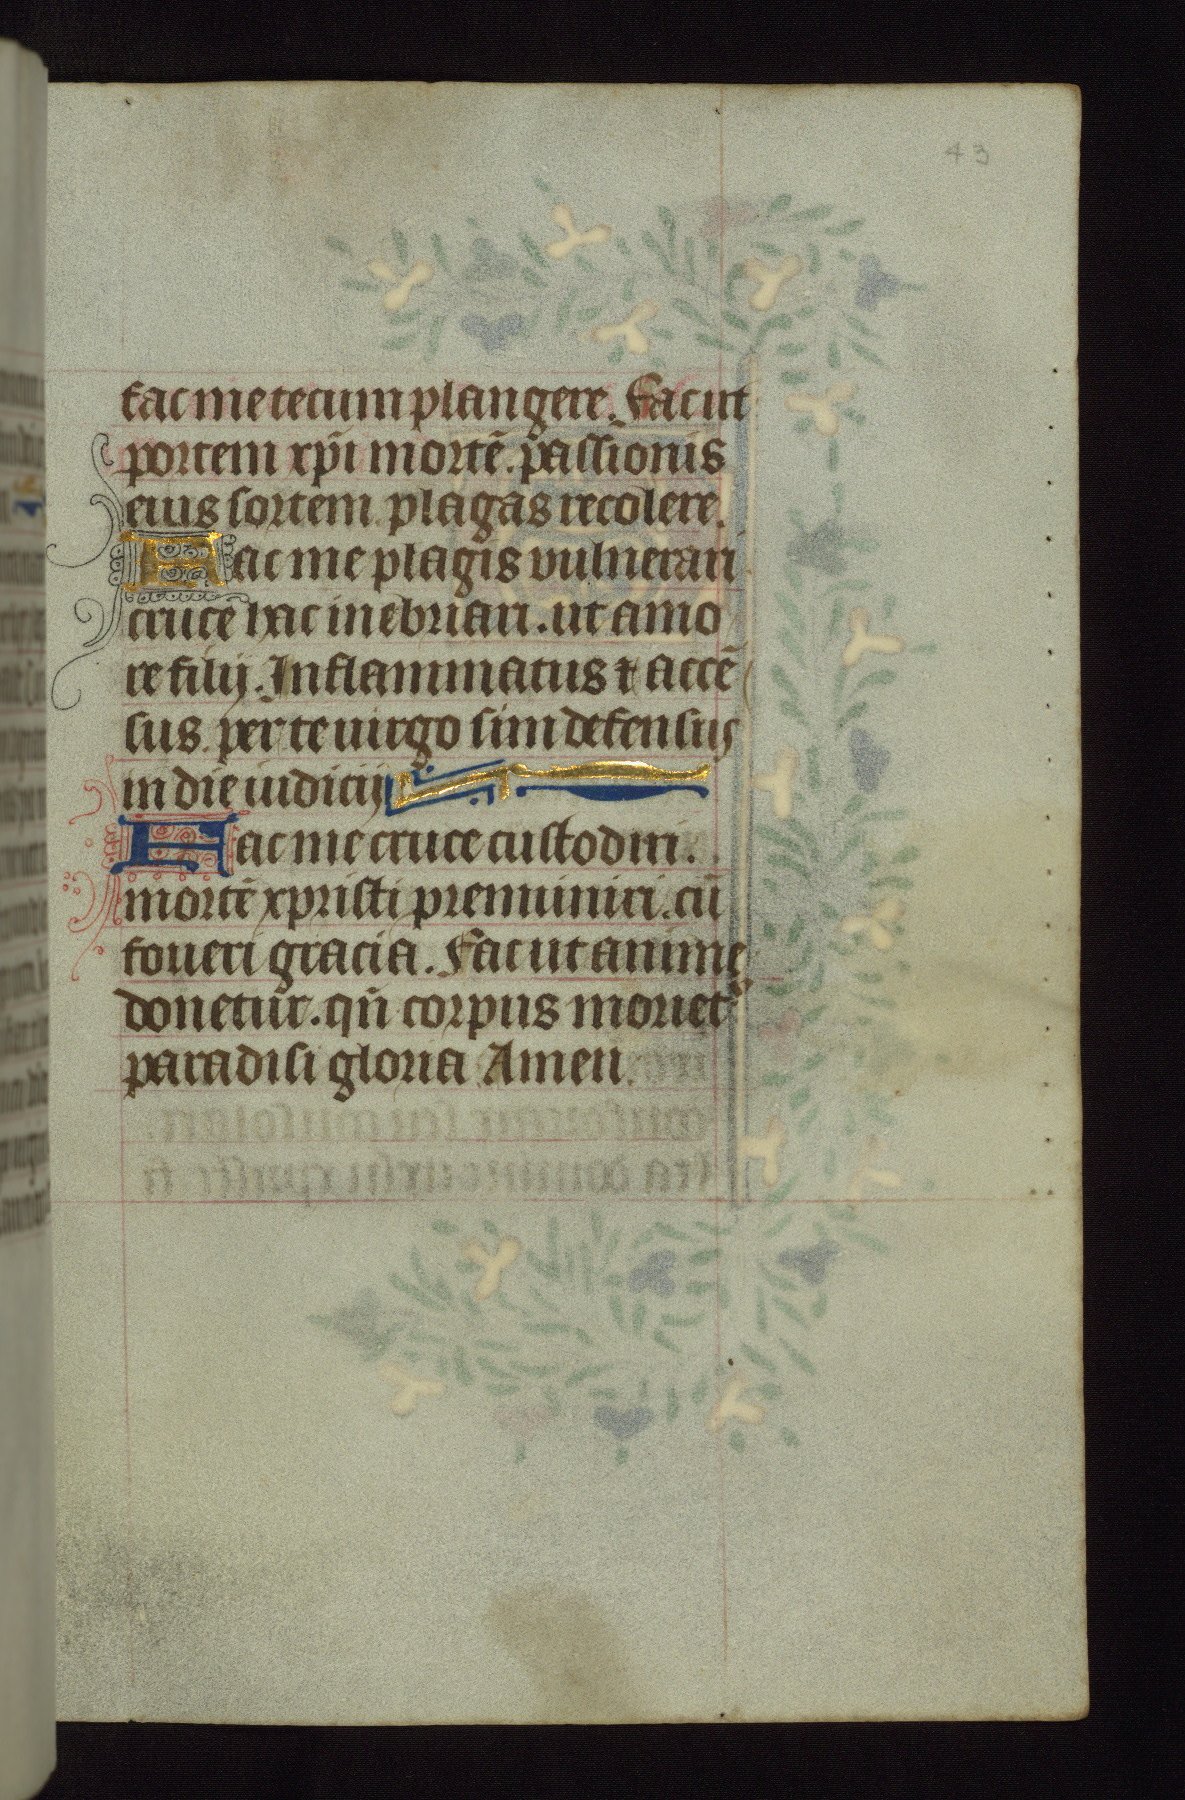 43
fac me tecum plangere. Fac ut
portem xp̄i mortē. passionis
eius sortem plagas recolere.
Fac me plagis vulnerari
cruce hac inebriari. ut amo
re filij. Inflammatus ⁊ accē
sus. per te uirgo sim defensus
in die iudicij
Fac me cruce custodiri.
mortē xpristi premuniri. cū
foueri gracia. Fac ut anime
donetur. qn̄ corpus moriet᷑
paradisi gloria Amen.